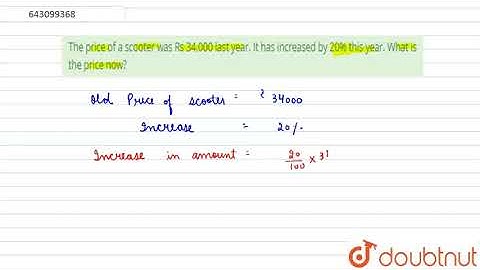 643099368
The price of a scooter was Rs 34.000 last year. It has increased by 20% this year. What is
the price now?
Old Price of scooter = ₹ 34000
Increase = 20 %
Increase in amount = 20/100 × 31
doubtnut